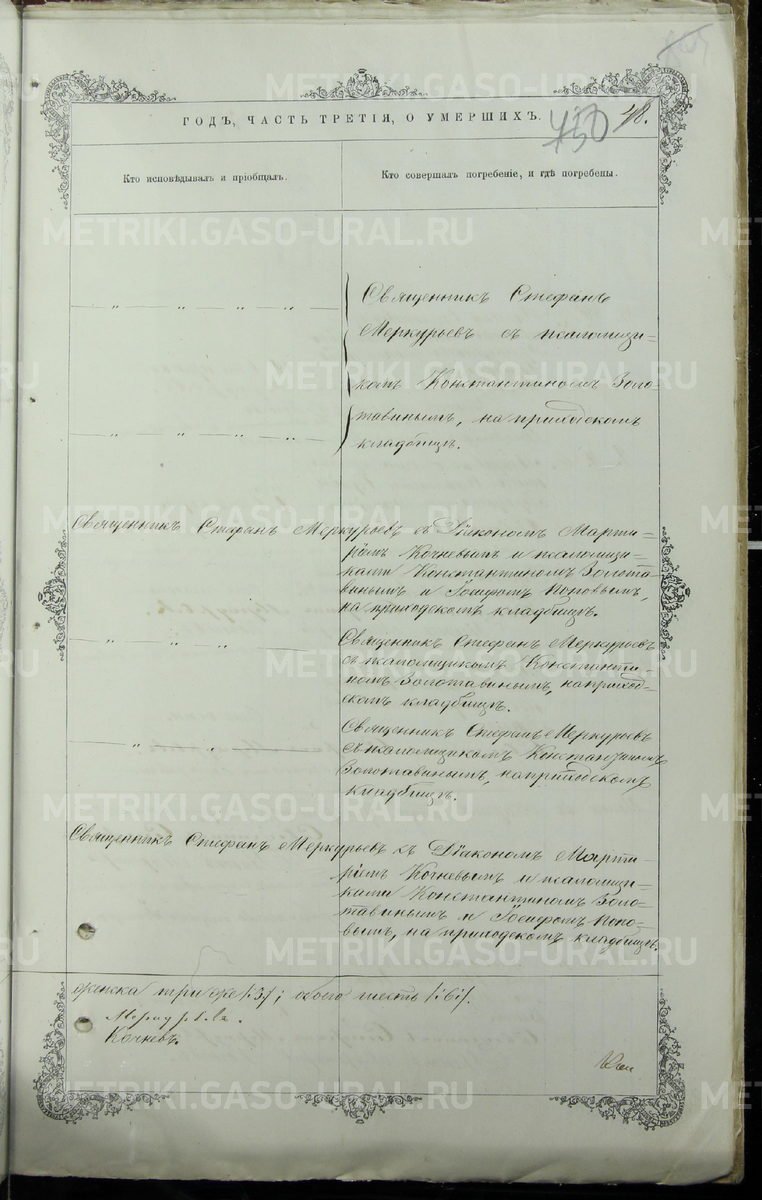 750 48.
ГОДЪ, ЧАСТЬ ТРЕТІЯ, О УМЕРШИХЪ.
Кто исповѣдывалъ и пріобщалъ.
Кто совершалъ погребеніе, и гдѣ погребены.
Священникъ Стефанъ
Меркурьевъ съ псаломщи-
комъ Константиномъ Золо-
тавинымъ, на приходскомъ
кладбищѣ.
Священникъ Стефанъ Меркурьевъ съ Діакономъ Марти-
ріемъ Кочневымъ и псаломщи-
ками Константиномъ Золота-
винымъ и Іосифомъ Поповымъ,
на приходскомъ кладбищѣ.
Священникъ Стефанъ Меркурьевъ
съ псаломщикомъ Константи-
номъ Золотавинымъ, на приход-
скомъ кладбищѣ.
Священникъ Стефанъ Меркурьевъ
съ псаломщикомъ Константиномъ
Золотавинымъ, на приходскомъ
кладбищѣ.
Священникъ Стефанъ Меркурьевъ съ Діакономъ Марти-
ріемъ Кочневымъ и псаломщи-
ками Константиномъ Золо-
тавинымъ и Іосифомъ Попо-
вымъ, на приходскомъ кладбищѣ.
женска три же /:3:/; обоего шесть /:6:/.
Меркурьевъ.
Кочневъ.
METRIKI.GASO-URAL.RU